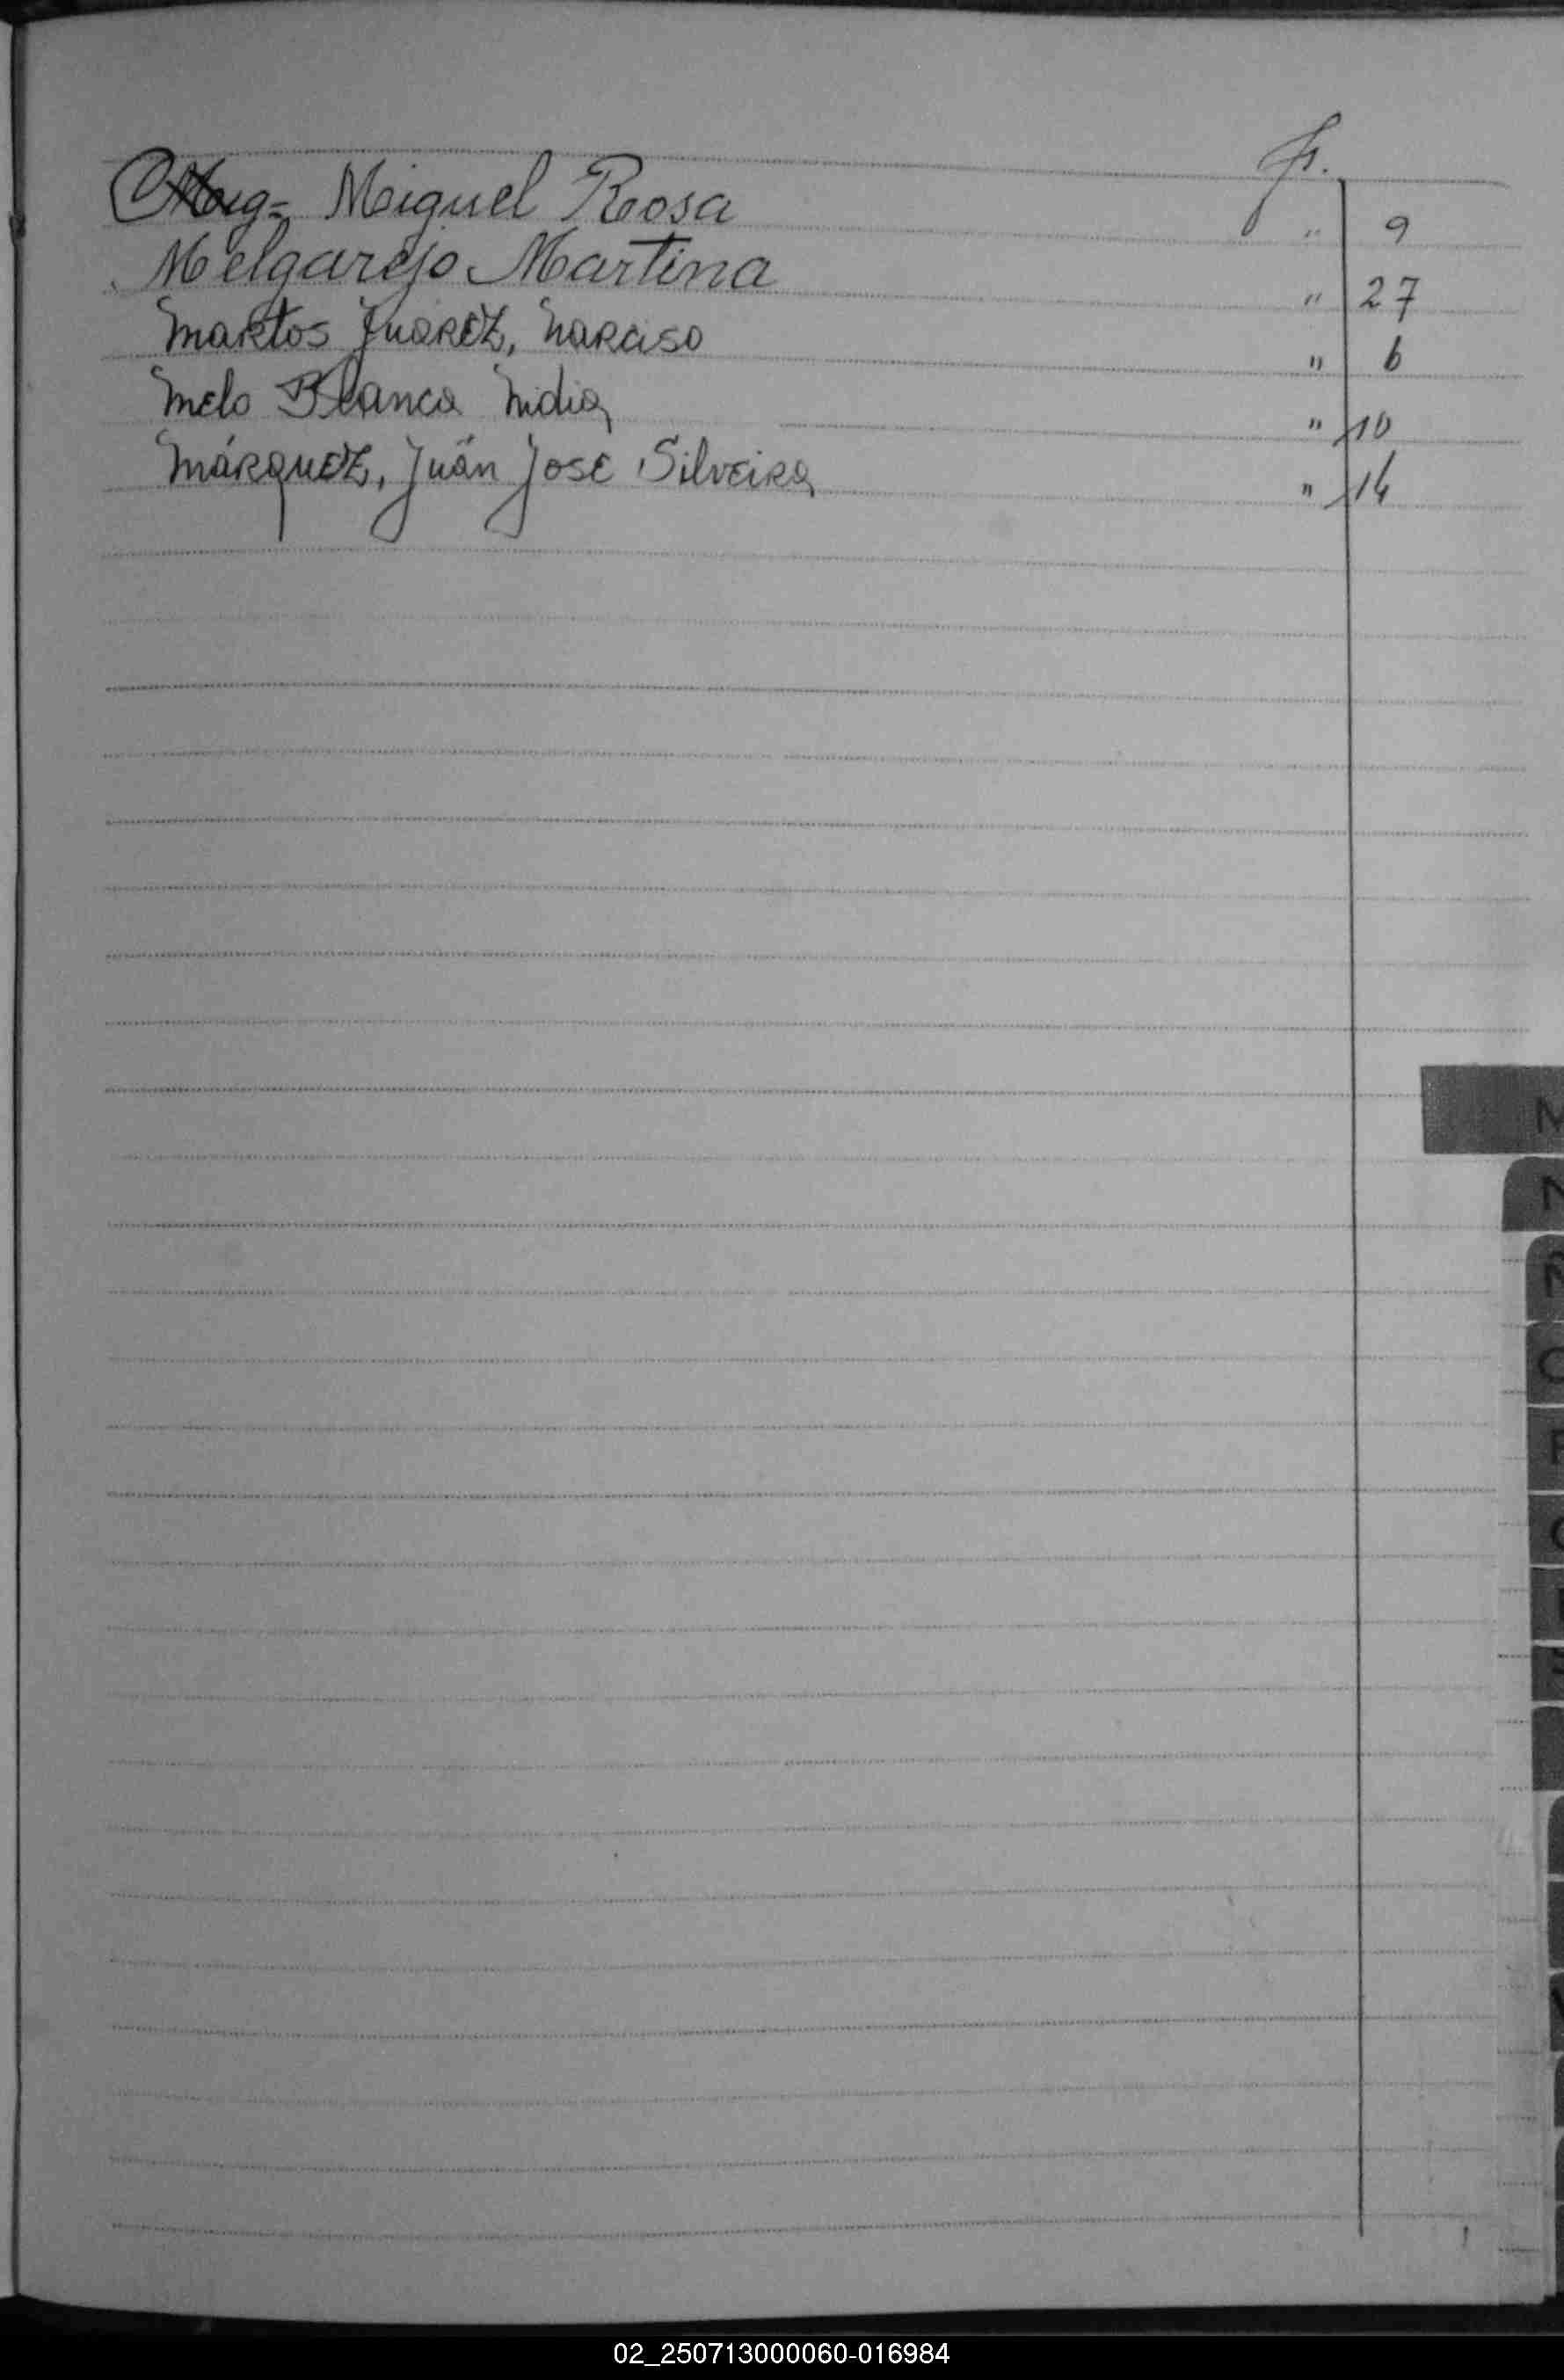 Fs.
Meiguel Rosa " 9
Melgarejo Martina " 27
Martos Juarez, Narciso " 6
Melo Blanca Nidia " 10
Márquez, Juan José Silveira " 14
M
N
02_250713000060-016984